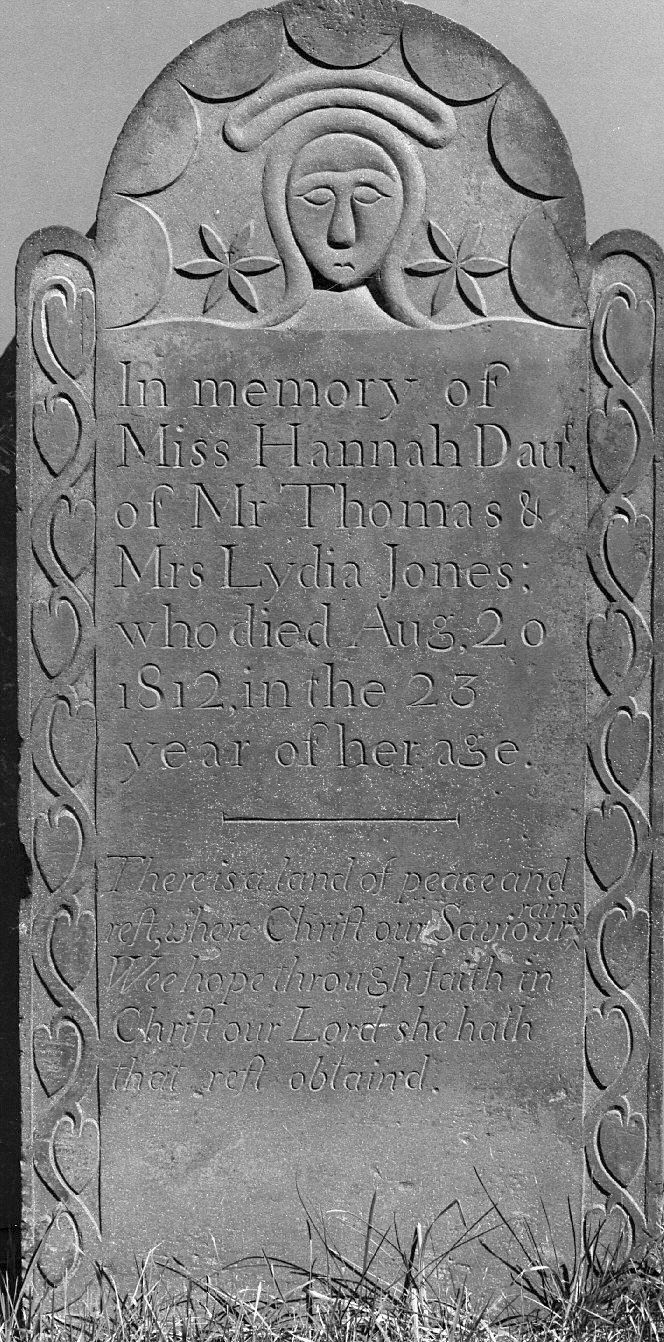 In memory of
Miss Hannah Daur.
of Mr Thomas &
Mrs Lydia Jones;
who died Aug, 20
1812, in the 23
year of her age.
There is a land of peace and
reſt, where Chriſt our Saviour rains
Wee hope through faith in
Chriſt our Lord she hath
that reſt obtainrd.